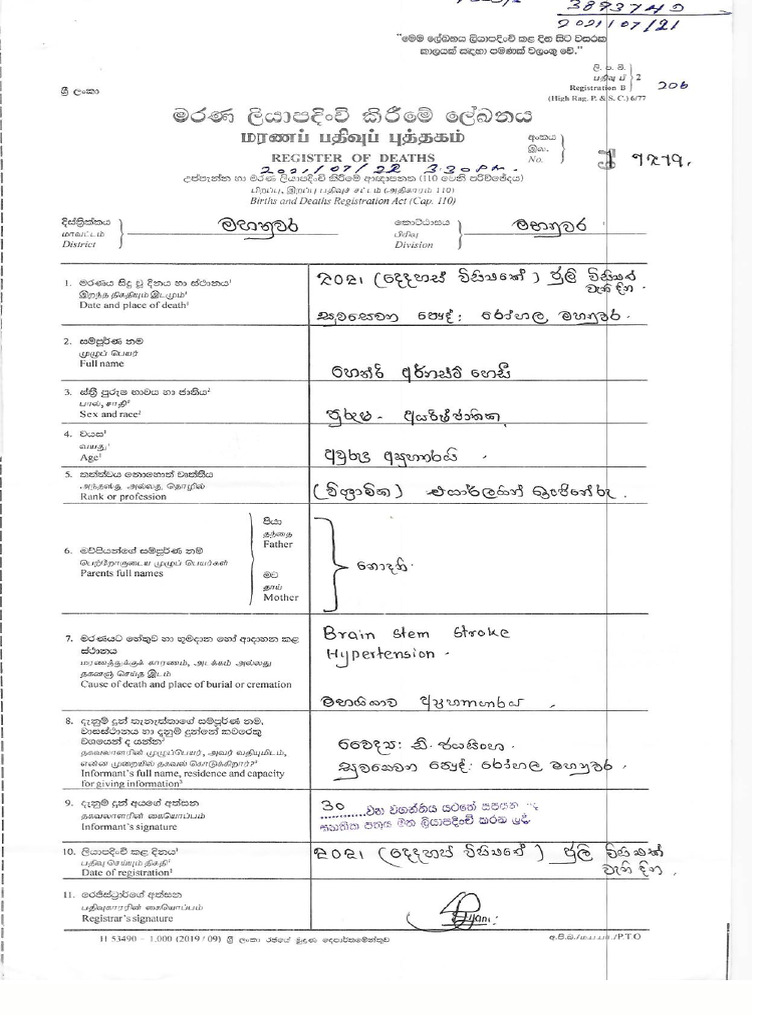 3893749
2021/07/21
"මෙම ලේඛනය ලියාපදිංචි කළ දින සිට වසරක
කාලයක් සඳහා පමණක් වලංගු වේ."
ශ්‍රී ලංකා
ලි. ප. වි.
පතිවු ඒ 2
Registration B 206
(High Rag. P. & S. C.) 6/77
මරණ ලියාපදිංචි කිරීමේ ලේඛනය
மரணப் பதிவுப் புத்தகம்
REGISTER OF DEATHS
අංකය
இல.
No. 9219.
2021/07/22 3.30 pm.
උප්පැන්න හා මරණ ලියාපදිංචි කිරීමේ ආඥාපනත (110 වෙනි පරිච්ඡේදය)
பிறப்பு, இறப்பு பதிவுச் சட்டம் (அதிகாரம் 110)
Births and Deaths Registration Act (Cap. 110)
දිස්ත්‍රික්කය
மாவட்டம்
District
මහනුවර
කොට්ඨාසය
பிரிவு
Division
මහනුවර
1. මරණය සිදු වූ දිනය හා ස්ථානය¹
இறந்த திகதியும் இடமும்¹
Date and place of death¹
2021 (දෙදහස් විසිඑකේ) ජූලි විසිඑක්
වැනි දින.
සුවසෙවන පෞද්: රෝහල මහනුවර.
2. සම්පූර්ණ නම
முழுப் பெயர்
Full name
හෙන්රි අර්නස්ට් හෙසී
3. ස්ත්‍රී පුරුෂ භාවය හා ජාතිය²
பால், சாதி²
Sex and race²
පුරුෂ - අයරිෂ්ජාතික
4. වයස¹
வயது¹
Age¹
අවුරුදු අසූහාරයි.
5. තත්ත්වය නොහොත් වෘත්තිය
அந்தஸ்து அல்லது தொழில்
Rank or profession
(විශ්‍රාමික)
6. මව්පියන්ගේ සම්පූර්ණ නම්
பெற்றோருடைய முழுப் பெயர்கள்
Parents full names
පියා
தந்தை
Father
මව
தாய்
Mother
නොදනී.
7. මරණයට හේතුව හා භූමදාන හෝ ආදාහන කළ
ස්ථානය
மரணத்துக்குக் காரணம், அடக்கம் அல்லது
தகனஞ் செய்த இடம்
Cause of death and place of burial or cremation
Brain stem stroke
Hypertension.
මහයියාව
8. දැනුම් දුන් තැනැත්තාගේ සම්පූර්ණ නම,
වාසස්ථානය හා දැනුම් දුන්නේ කවරෙකු
වශයෙන් ද යන්න³
தகவலாளரின் முழுப்பெயர், அவர் வதியுமிடம்,
என்ன முறையில் தகவல் கொடுக்கிறார்?³
Informant's full name, residence and capacity
for giving information³
වෛද්‍ය: ඩී. ජයසිංහ.
සුවසෙවන පෞද්: රෝහල මහනුවර.
9. දැනුම් දුන් අයගේ අත්සන
தகவலாளரின் கையொப்பம்
Informant's signature
30 වන වගන්තිය යටතේ සපයන
සහතික පත්‍රය මත ලියාපදිංචි කරන ලදී
10. ලියාපදිංචි කළ දිනය¹
பதிவு செய்யும் திகதி¹
Date of registration¹
2021 (දෙදහස් විසිඑකේ) ජූලි විසිඑක්
වැනි දින.
11. රෙජිස්ට්‍රාර්ගේ අත්සන
பதிவுகாரரின் கையொப்பம்
Registrar's signature
H 53490 – 1,000 (2019 / 09) ශ්‍රී ලංකා රජයේ මුද්‍රණ දෙපාර්තමේන්තුව
අ.පි.බ./ம.ப.பார்./P.T.O